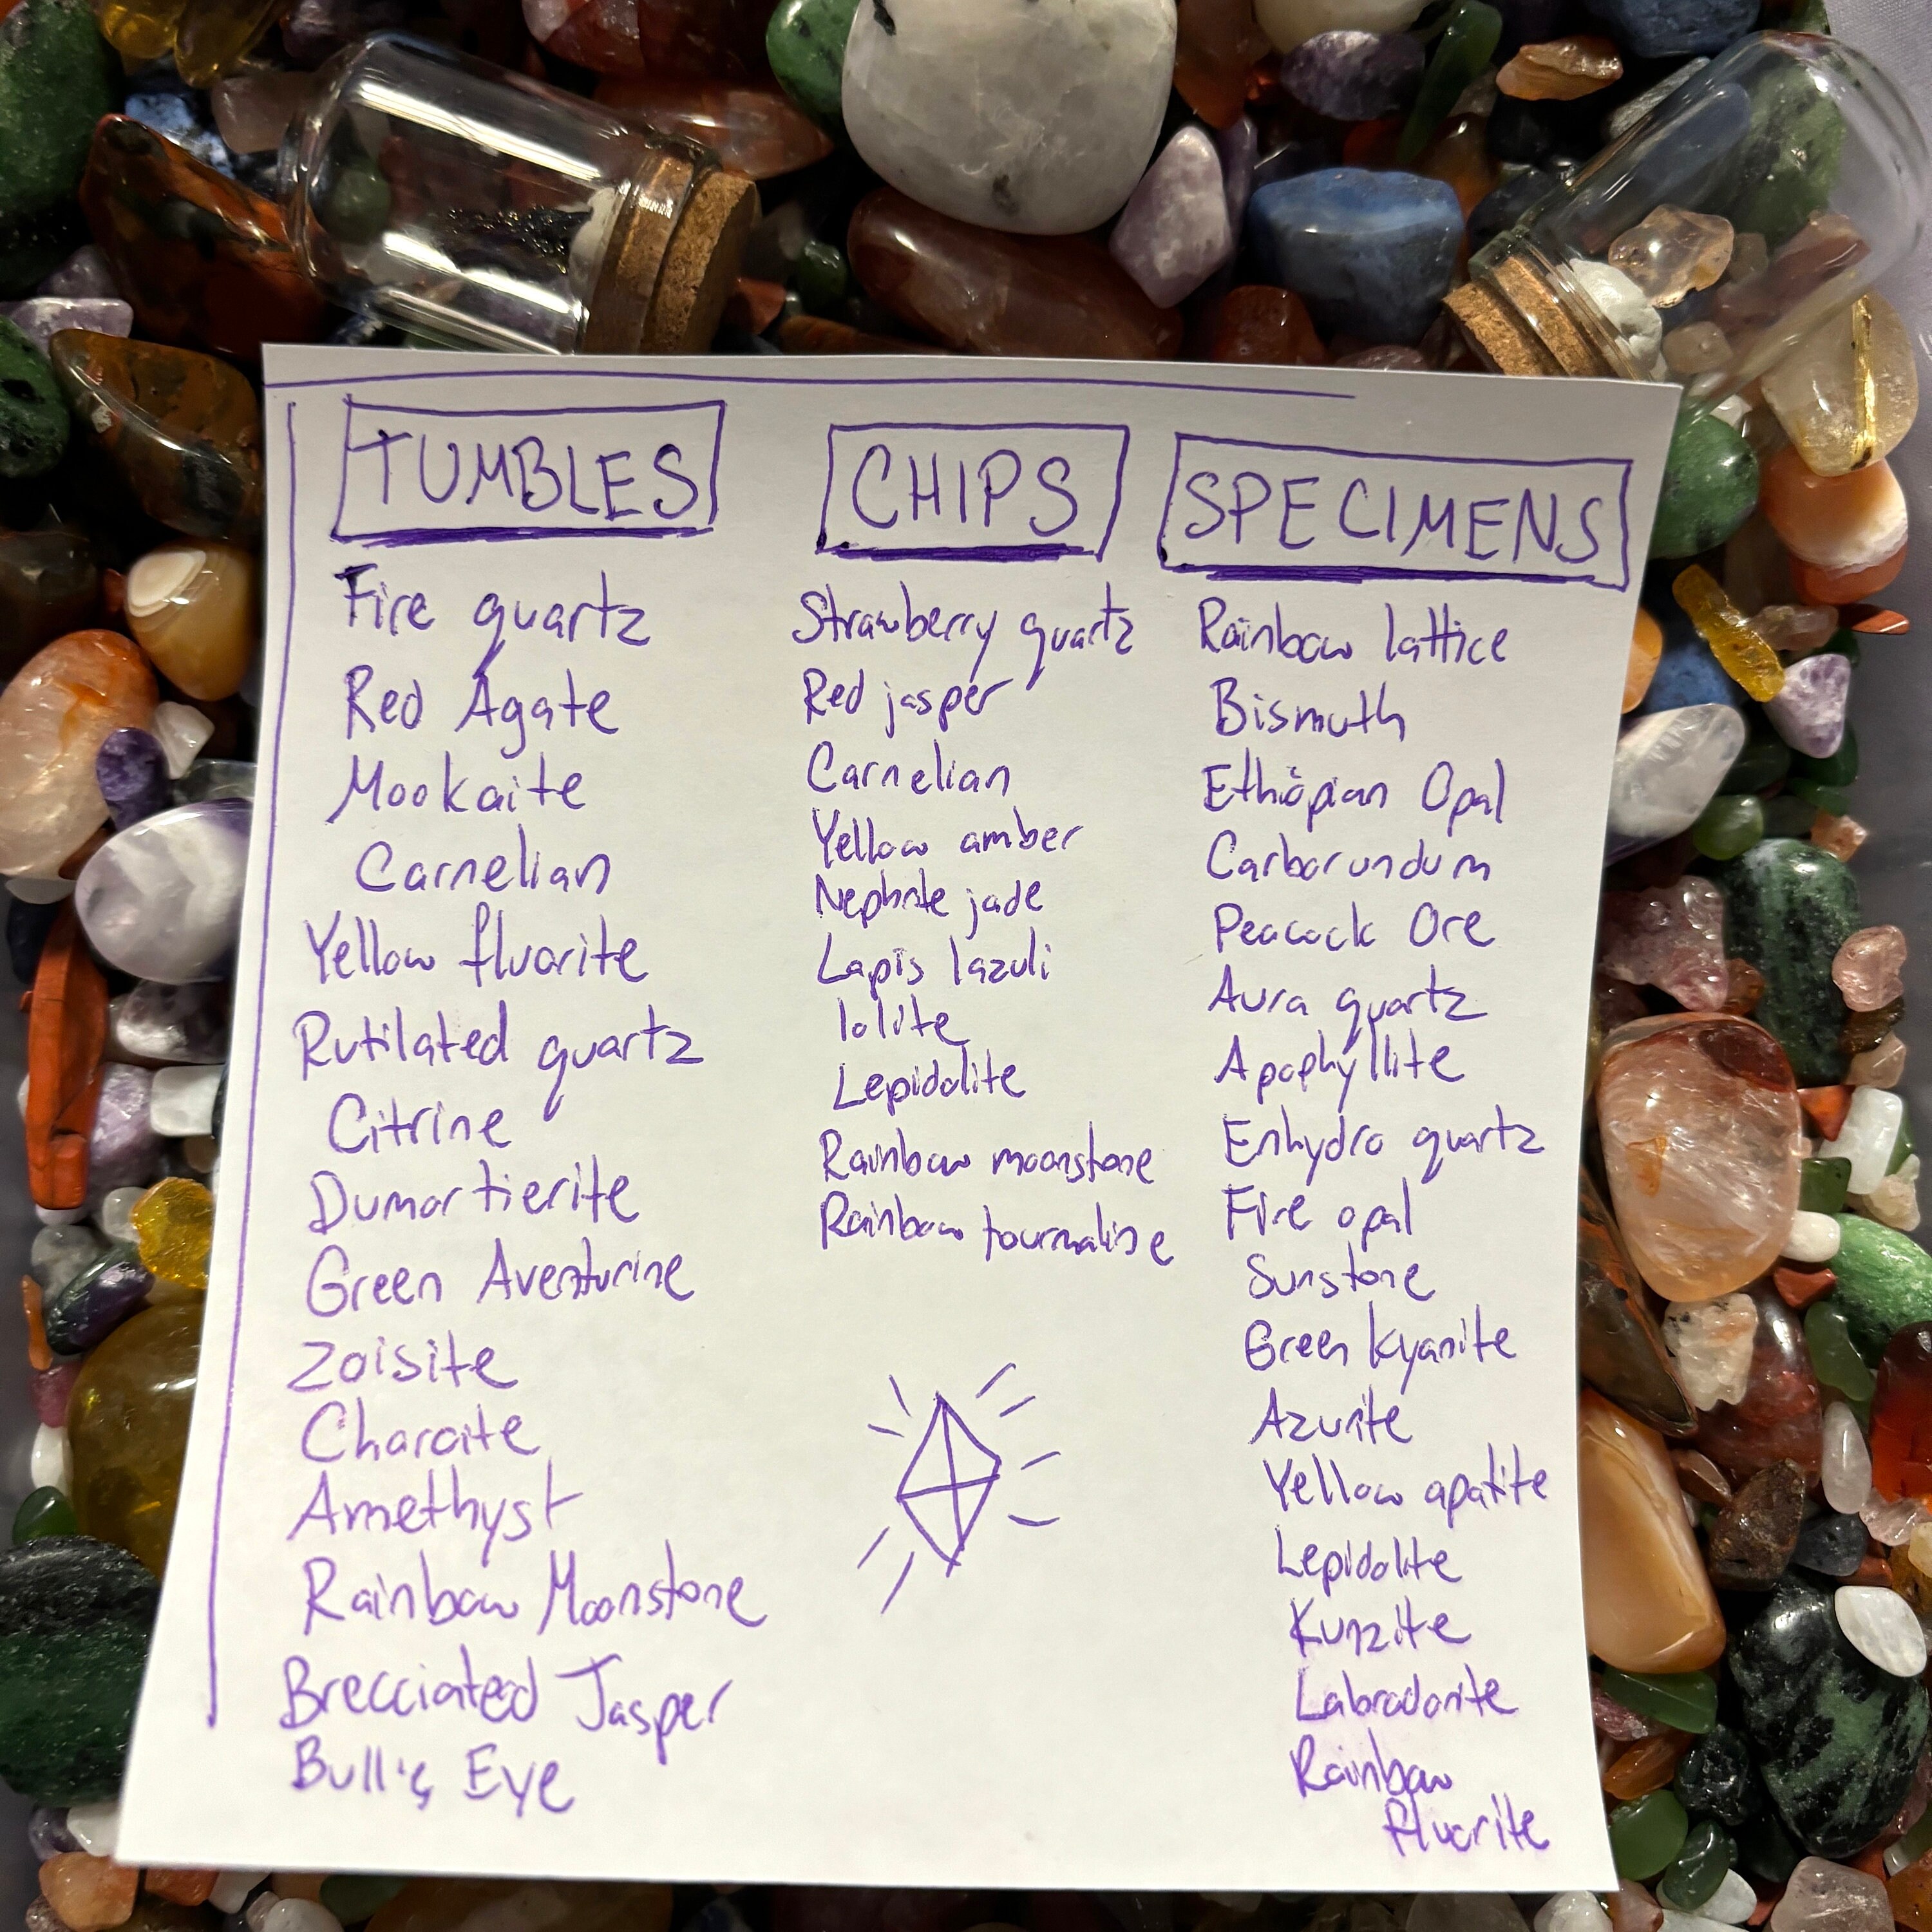 TUMBLES
Fire quartz
Red Agate
Mookaite
Carnelian
Yellow fluorite
Rutilated quartz
Citrine
Dumortierite
Green Aventurine
Zoisite
Charoite
Amethyst
Rainbow Moonstone
Brecciated Jasper
Bull's Eye
CHIPS
Strawberry quartz
Red jasper
Carnelian
Yellow amber
Nephrite jade
Lapis lazuli
Iolite
Lepidolite
Rainbow moonstone
Rainbow tourmaline
SPECIMENS
Rainbow lattice
Bismuth
Ethiopian Opal
Carborundum
Peacock Ore
Aura quartz
Apophyllite
Enhydro quartz
Fire opal
Sunstone
Green kyanite
Azurite
Yellow apatite
Lepidolite
Kunzite
Labradorite
Rainbow
fluorite